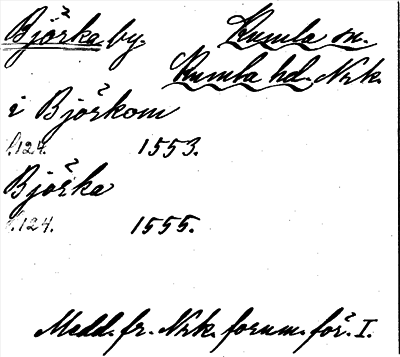 Björka by. Kumla sn.
Kumla hd. Nrk.
i Björkom
f.124. 1553.
Björka
f.124. 1555.
Medd. fr. Nrk. fornm. för. I.